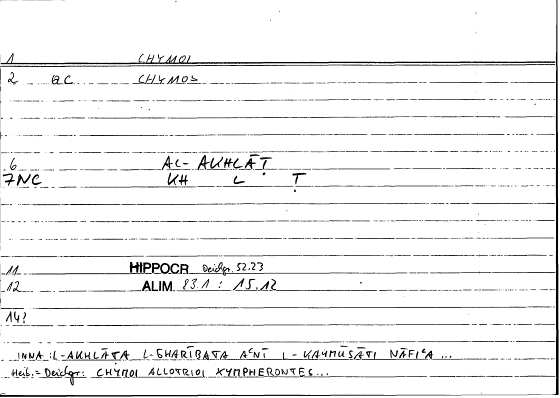 1 CHYMOI
2 QC CHYMOS
6 AL-AKHLĀṬ
7NC KH L Ṭ
11 HIPPOCR Deichgr. 52.23
12 ALIM 83.1 : 15.12
14?
INNA :L-AKHLĀṬA L-GHARĪBATA AʿNĪ L-KAYMŪSĀTI NĀFIʿA...
Heib.=Deichgr: CHYMOI ALLOTRIOI XYMPHERONTES...